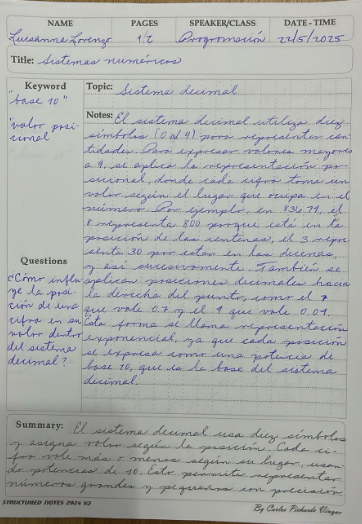 NAME PAGES SPEAKER/CLASS DATE - TIME
Luisanna Lorenzo 1/2 Programación 22/5/2025
Title: Sistemas numéricos
Keyword
"base 10"
"valor posi-
cional
Topic: Sistema decimal
Notes: El sistema decimal utiliza diez
símbolos (0 al 9) para representar can-
tidades. Para expresar valores mayores
a 9, se aplica la representación po-
sicional, donde cada cifra toma un
valor según el lugar que ocupa en el
número. Por ejemplo, en 836.79, el
8 representa 800 porque está en la
posición de las centenas, el 3 repre-
senta 30 por estar en las decenas,
y así sucesivamente. También se
aplican posiciones decimales hacia
la derecha del punto, como el 7
que vale 0.7 y el 9 que vale 0.09.
Esta forma se llama representación
exponencial, ya que cada posición
se expresa como una potencia de
base 10, que es la base del sistema
decimal.
Questions
¿Cómo influ
ye la posi
ción de una
cifra en su
valor dentro
del sistema
decimal?
Summary: El sistema decimal usa diez símbolos
y asigna valor según la posición. Cada ci-
fra vale más o menos según su lugar, usan-
do potencias de 10. Esto permite representar
números grandes y pequeños con precisión.
STRUCTURED NOTES 2024 V2
By Carlos Pichardo Viuque